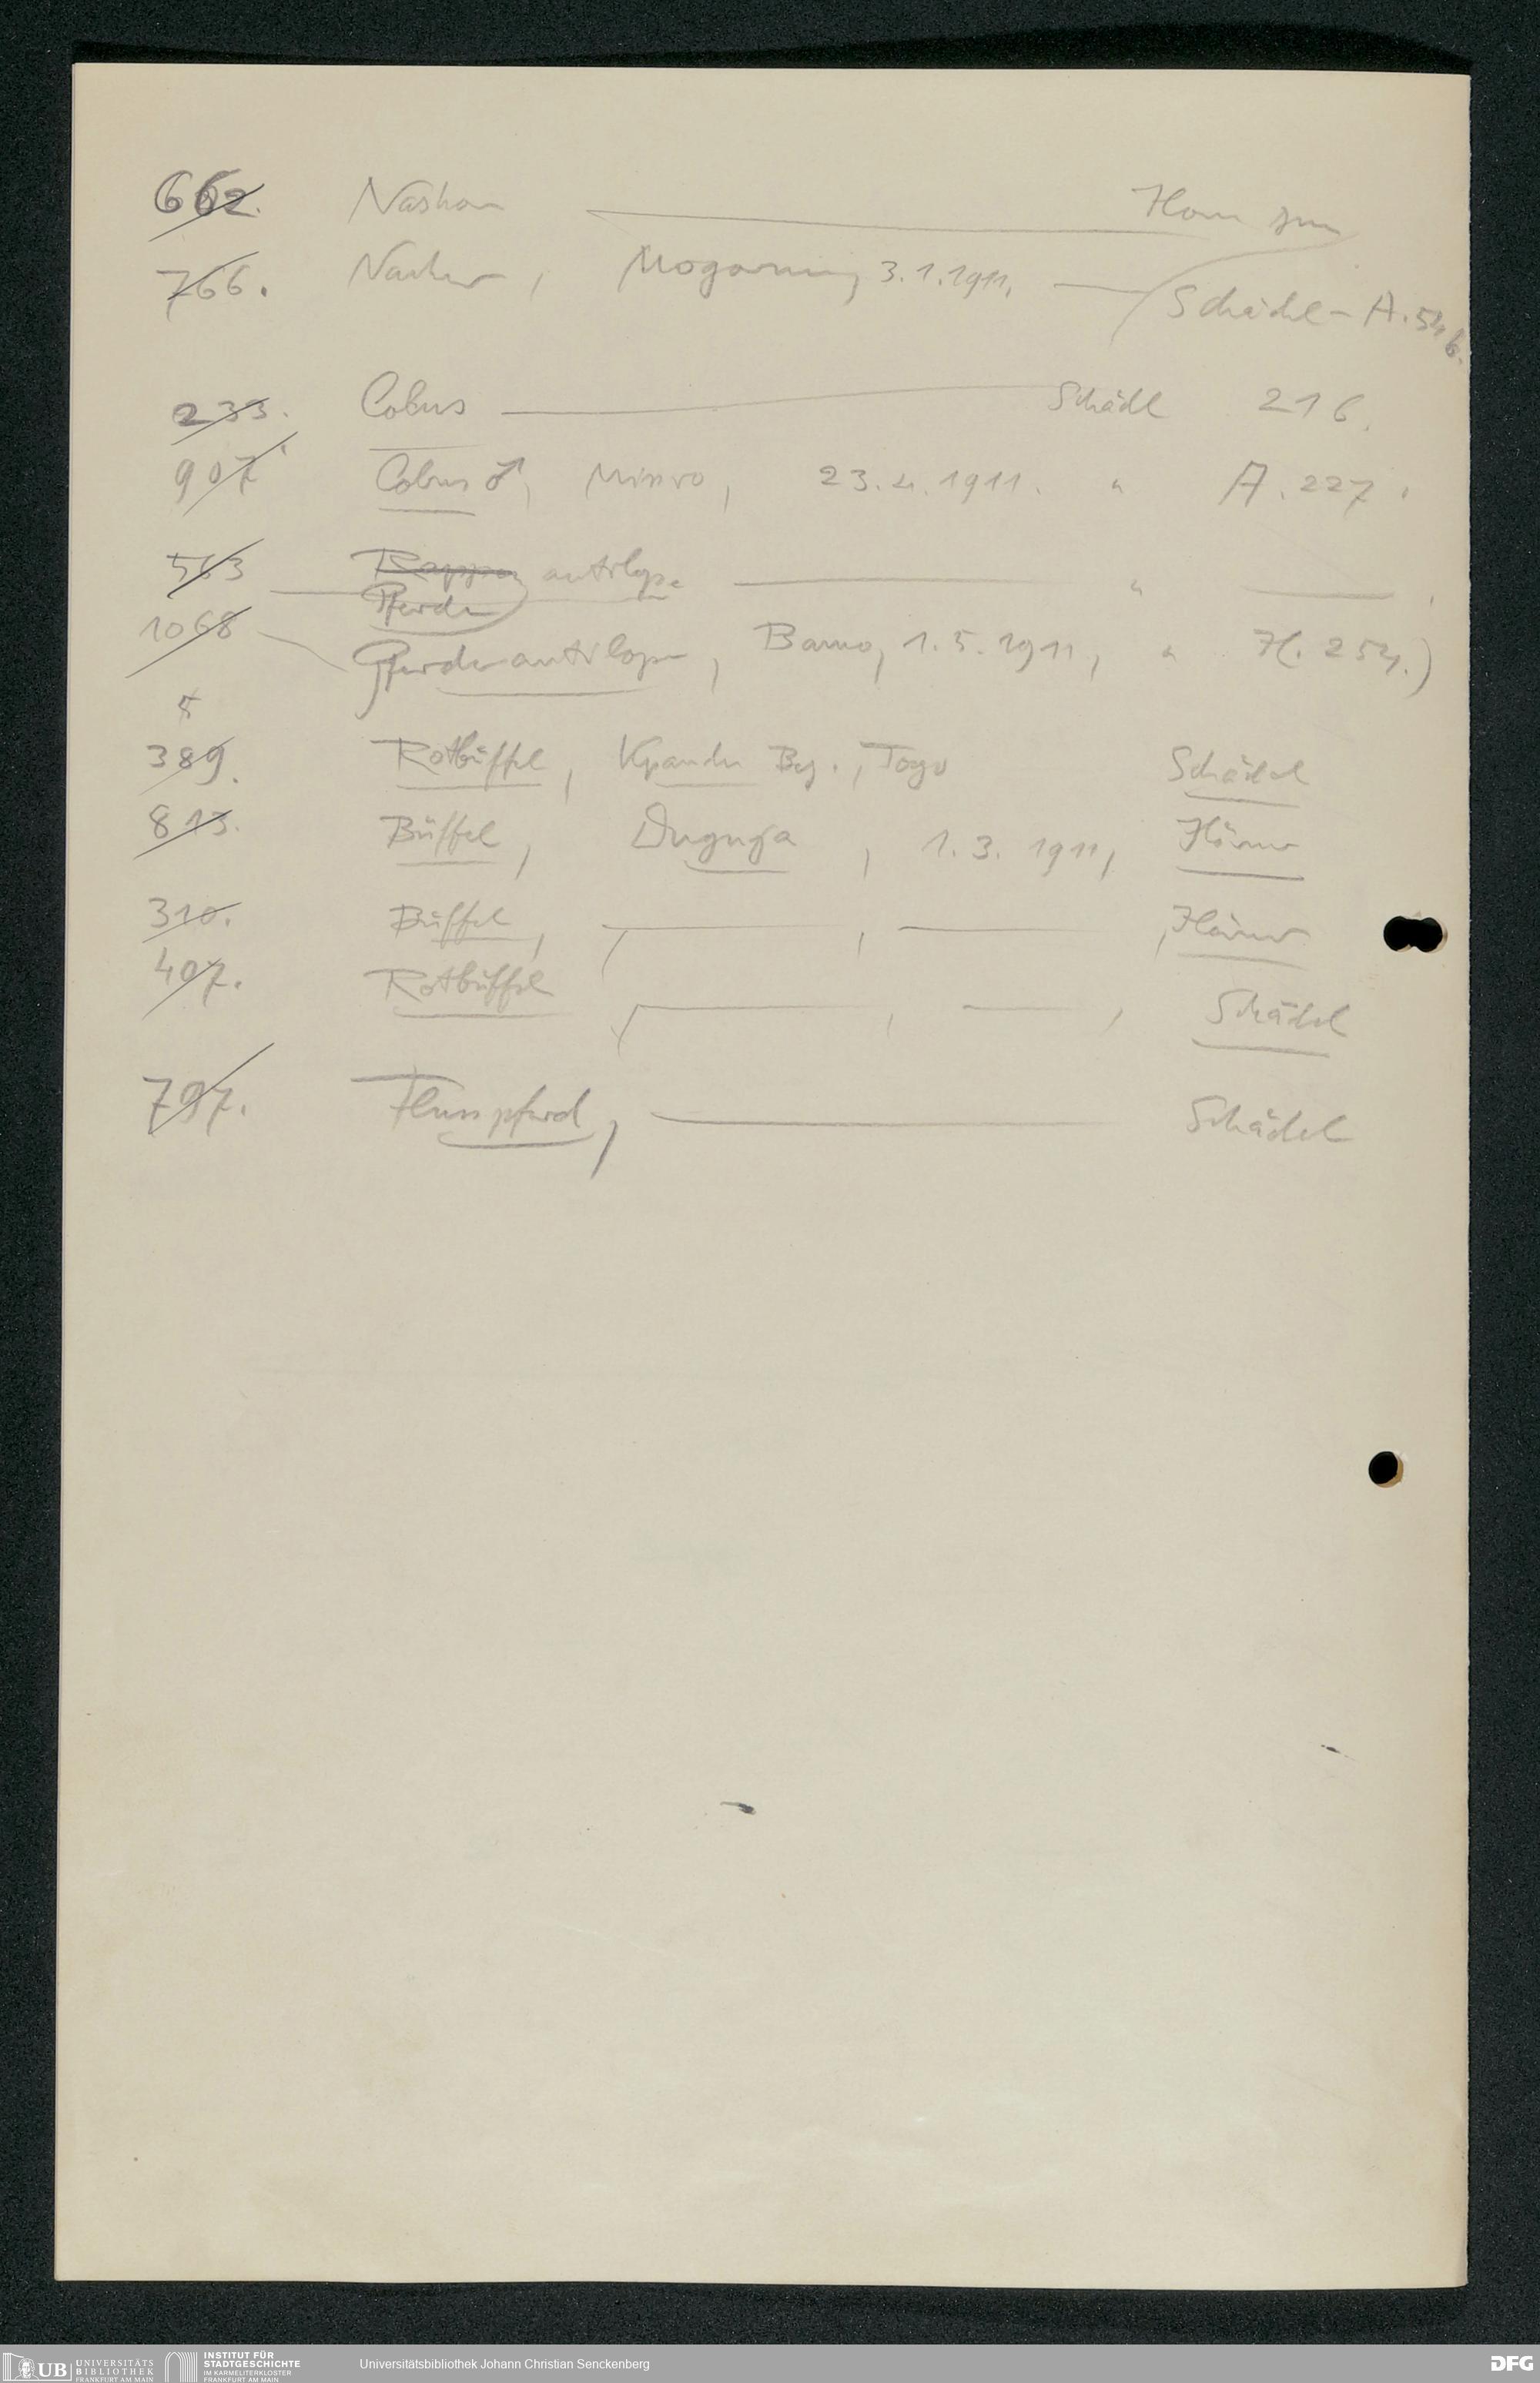 662. Nashorn Horn zum
766. Nashorn, Mogorum, 3.1.1911, Schädel - A. 54 b.
233. Cobus Schädl 216.
907. Cobus ♂, Misvo, 23.4.1911. " A. 227.
563 Rappen antilope "
Pferde
1068 Pferdeantilope, Bamo, 1.5.1911, " H. 254.)
5
389. Rotbüffel, Kpandu Bez., Togo Schädel
813. Büffel, Duguja, 1.3.1911, Hörner
310. Büffel, , , Hörner
407. Rotbüffel , , Schädel
797. Flusspferd, Schädel
UB UNIVERSITÄTS
BIBLIOTHEK
FRANKFURT AM MAIN
INSTITUT FÜR
STADTGESCHICHTE
IM KARMELITERKLOSTER
FRANKFURT AM MAIN
Universitätsbibliothek Johann Christian Senckenberg
DFG